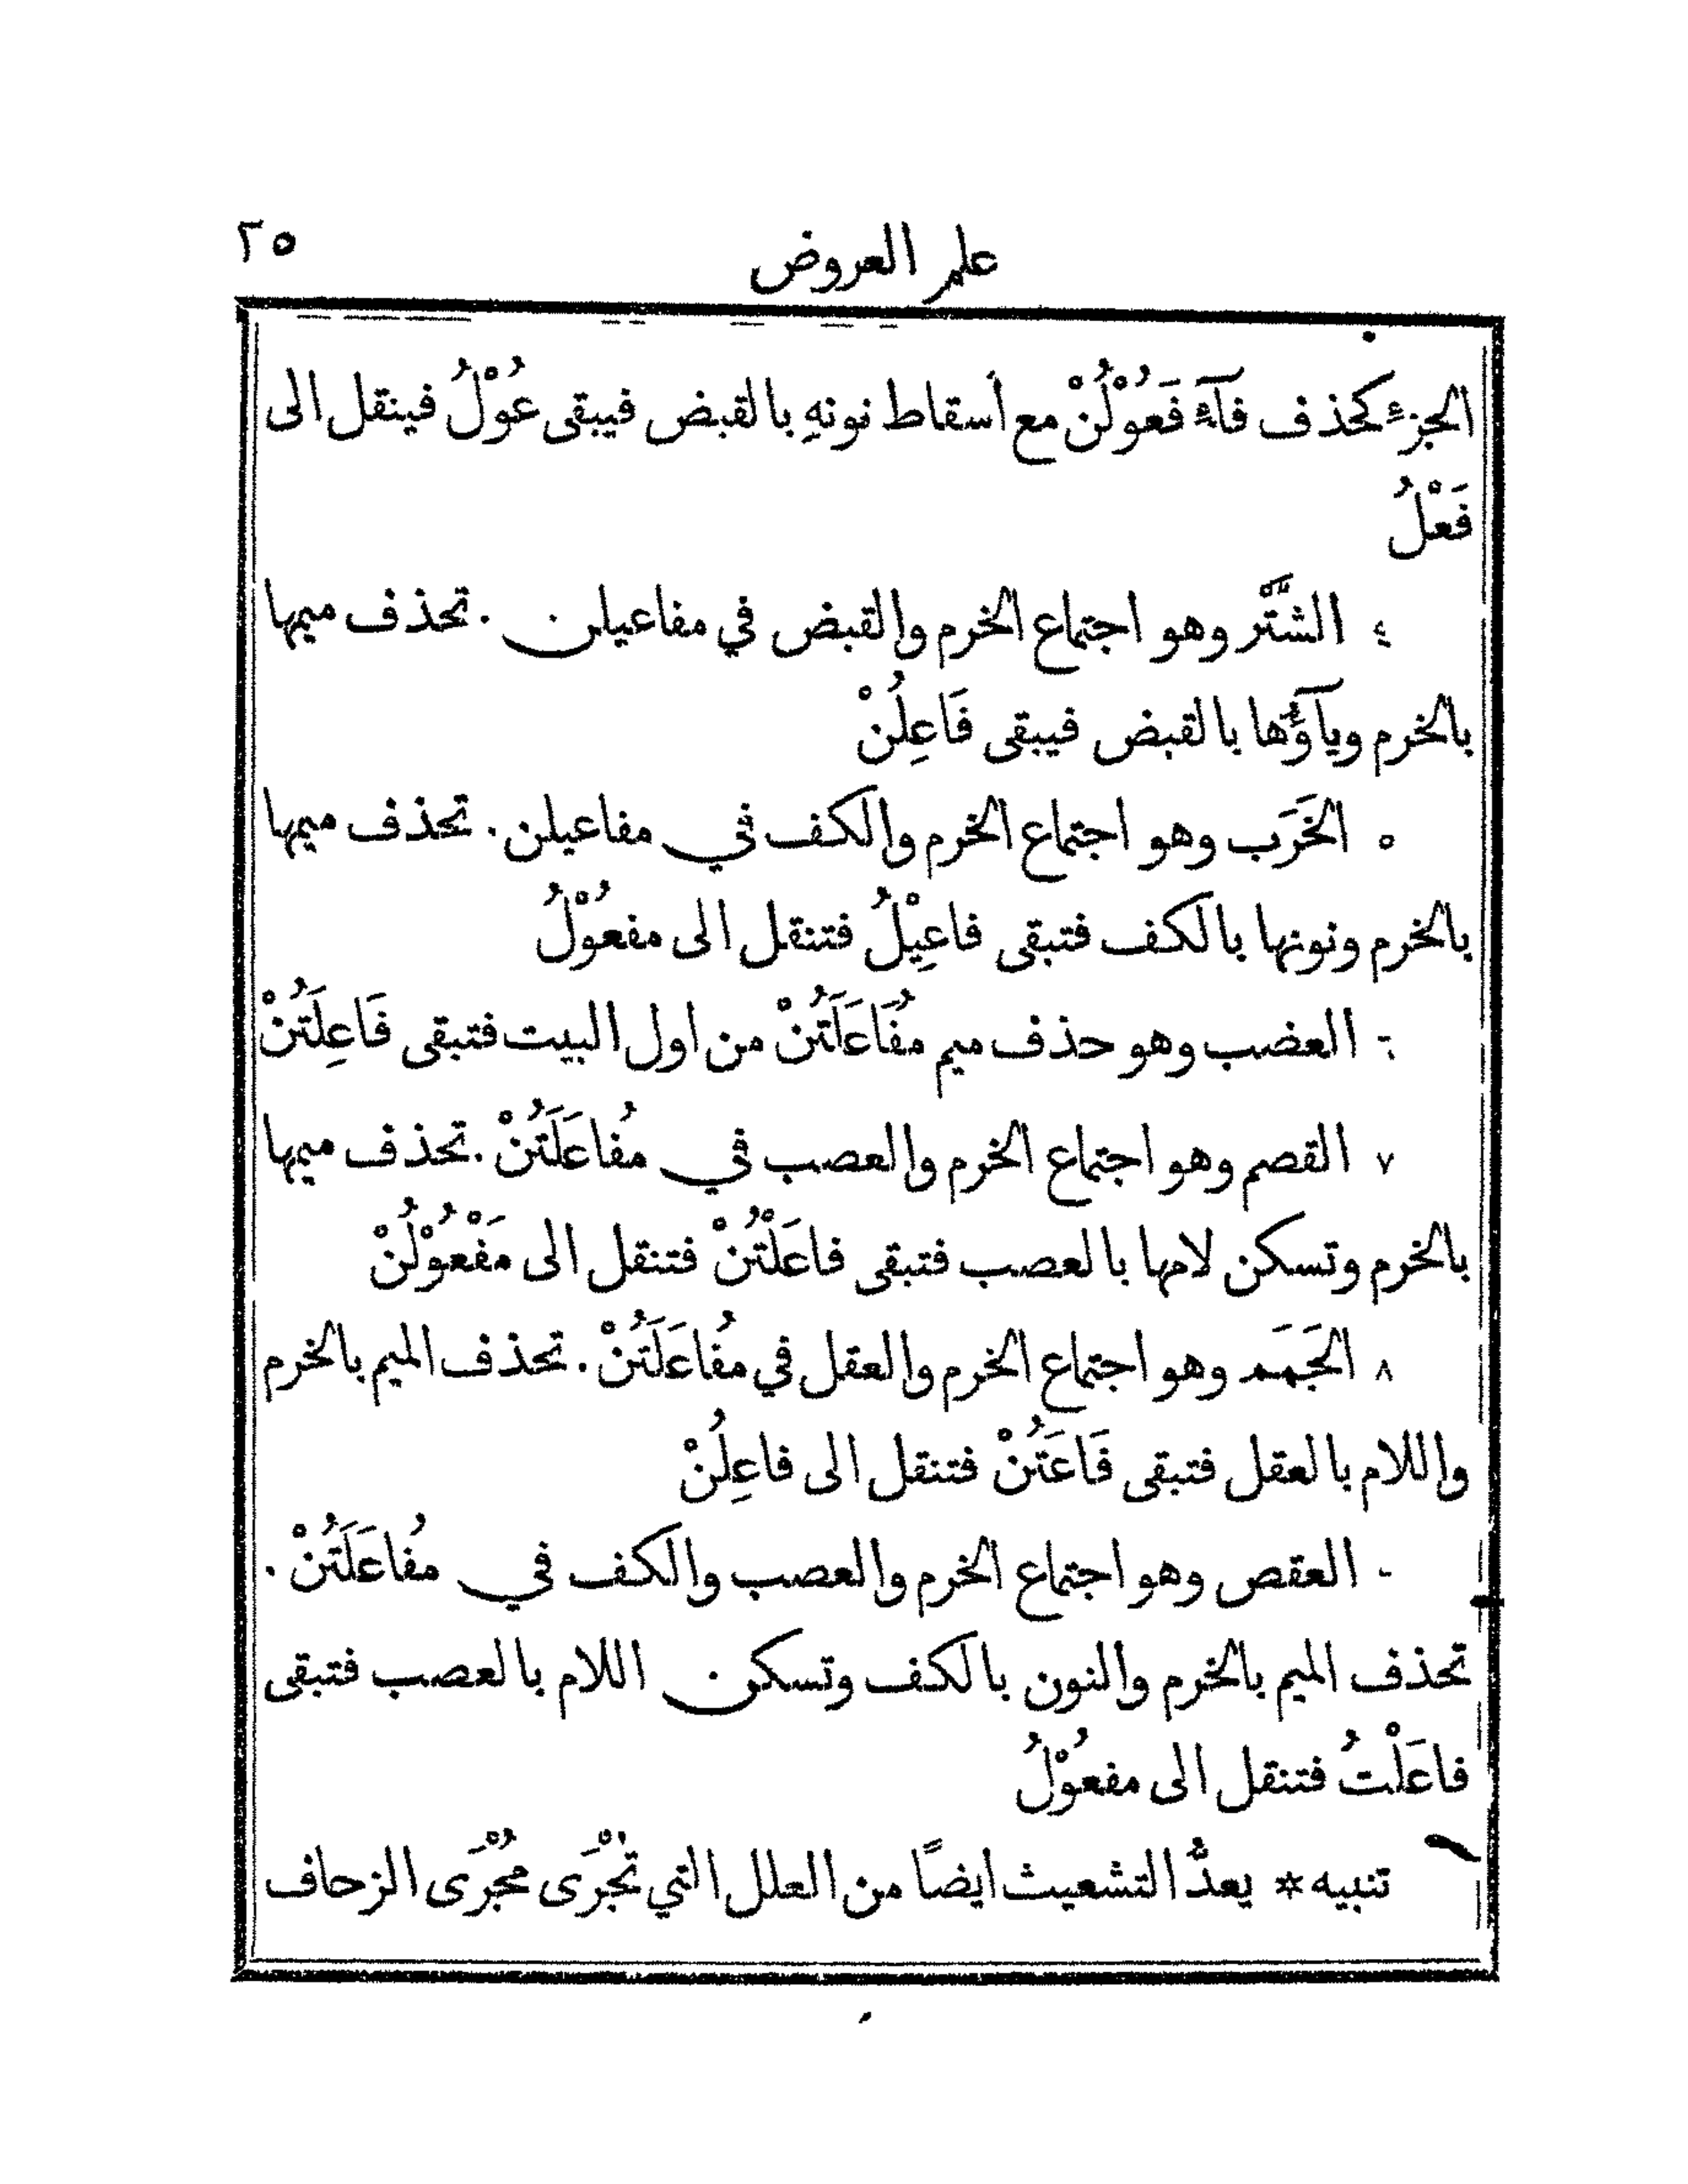 علم العروض ٢٥
الجزء كحذف فآء فَعُوْلُنْ مع أسقاط نونهِ بالقبض فيبقى عُوْلُ فينقل الى
فَعْلُ
٤ الشَّتْر وهو اجتماع الخرم والقبض في مفاعيلن . تحذف ميمها
بالخرم ويآؤُها بالقبض فيبقى فَاعِلُنْ
٥ الخَرَب وهو اجتماع الخرم والكف في مفاعيلن . تحذف ميمها
بالخرم ونونها بالكف فتبقى فاعِيْلُ فتنقل الى مفعُوْلُ
٦ العضب وهو حذف ميم مُفَاعَلَتُنْ من اول البيت فتبقى فَاعِلَتُنْ
٧ القصم وهو اجتماع الخرم والعصب في مُفاعَلَتُنْ . تحذف ميمها
بالخرم وتسكن لامها بالعصب فتبقى فاعَلْتُنْ فتنقل الى مَفْعُوْلُنْ
٨ الجَمَم وهو اجتماع الخرم والعقل في مفُاعَلَتُنْ . تحذف الميم بالخرم
واللام بالعقل فتبقى فَاعَتُنْ فتنقل الى فاعِلُنْ
- العقص وهو اجتماع الخرم والعصب والكف في مُفاعَلَتُنْ .
تحذف الميم بالخرم والنون بالكف وتسكن اللام بالعصب فتبقى
فاعَلْتُ فتنقل الى مفعُوْلُ
تنبيه * يعدُّ التشعيث ايضًا من العلل التي تُجْرَى مُجْرَى الزحاف